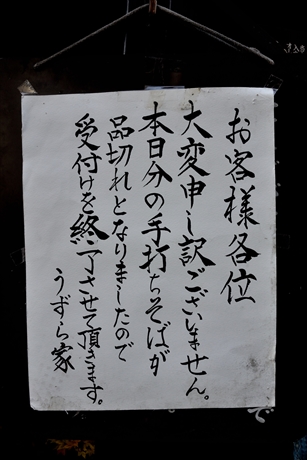 お客様各位
大変申し訳ございません。
本日分の手打ちそばが
品切れとなりましたので
受付けを終了させて頂きます。
うずら家